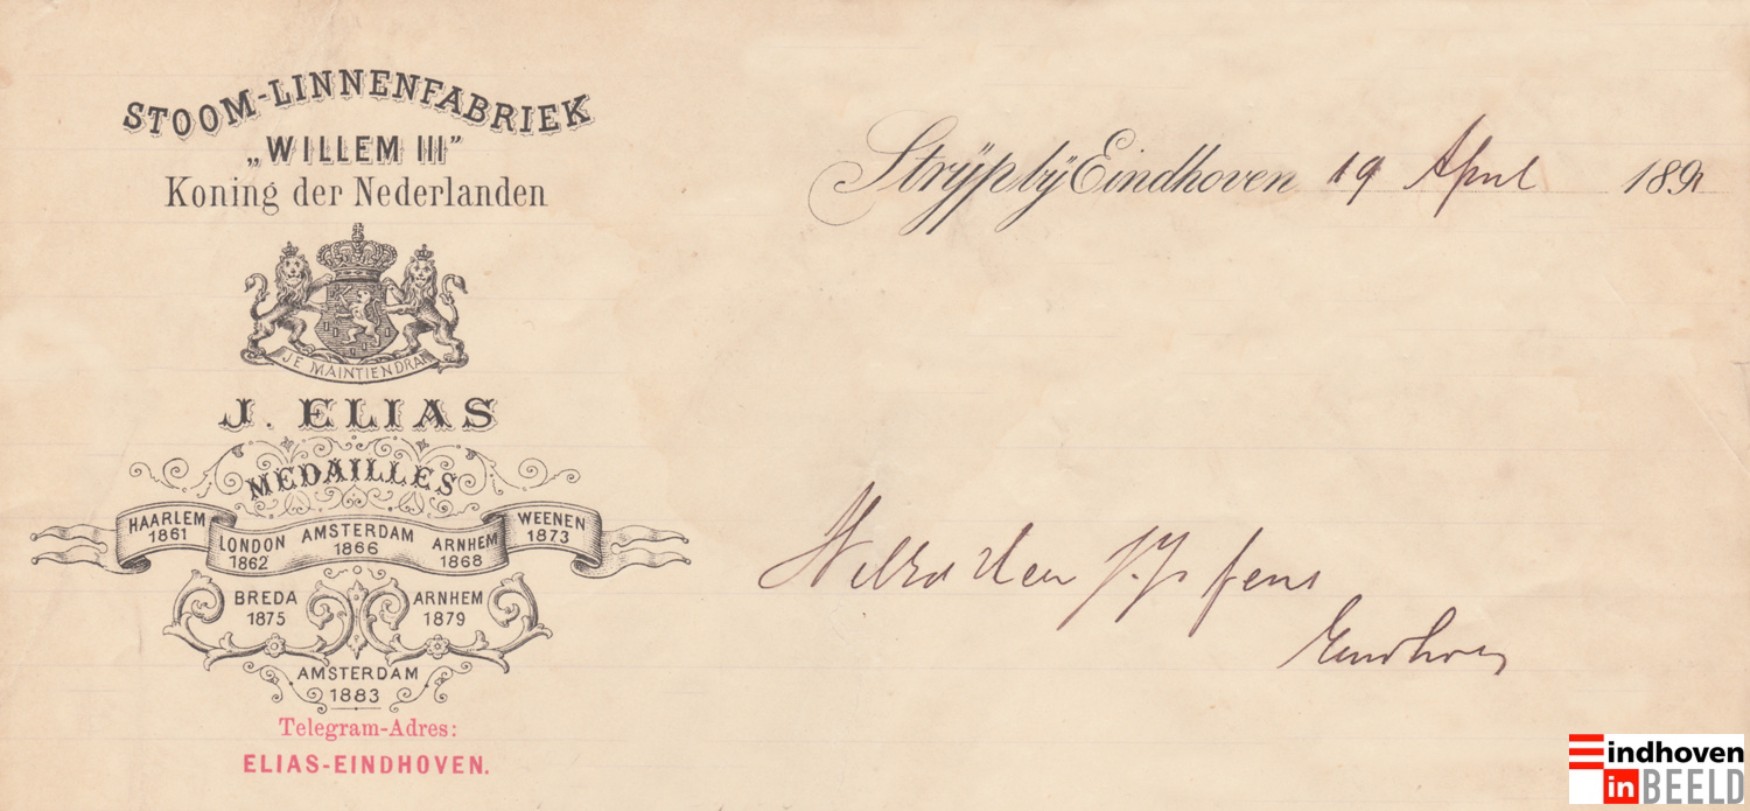 STOOM-LINNENFABRIEK
„WILLEM III”
Koning der Nederlanden
JE MAINTIENDRAI
J. ELIAS
MEDAILLES
HAARLEM 1861
LONDON 1862
AMSTERDAM 1866
ARNHEM 1868
WEENEN 1873
BREDA 1875
ARNHEM 1879
AMSTERDAM 1883
Telegram-Adres:
ELIAS-EINDHOVEN.
Strijp bij Eindhoven 19 April 189
Eindhoven
Eindhoven
in BEELD